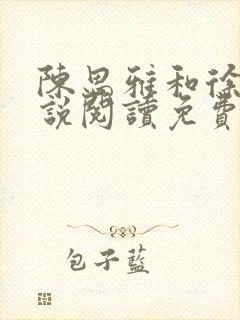 陳思雅和徐
說閱讀免費
包子藍